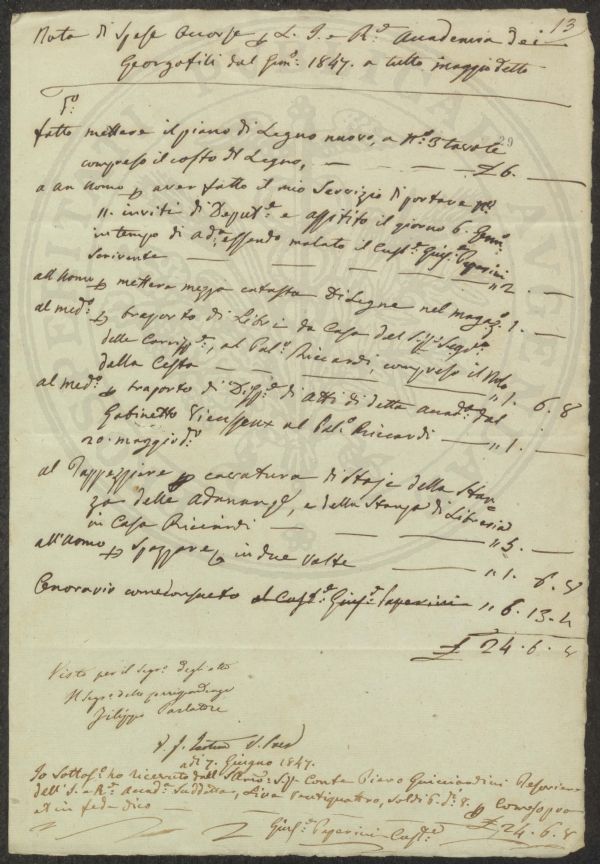 13
Nota di Spese occorse p L. I. e R.e Accademia dei
Georgofili dal Genn.o 1847. a tutto maggio detto
P.o
fatto mettere il piano di Legno nuovo, a N.o 3 tavole
29
compreso il costo del Legno, — — — £ 6. —
a un Uomo p aver fatto il mio Servizio di portare N.o
11. inviti di Deput.e e assistito il giorno 6. Genn.o
in tempo di ad.a essendo malato il Cust.e Gius.e Paperini
Scrivente — — — — — " 2. —
all'Uomo p mettere mezza catasta Di Legne nel magaz.o 1. —
al med.o p traporto di Libri da Casa del Sig.r Seg.rio
delle Corrisp.e, al Pal.o Riccardi, compreso il nolo
della Cesta — — — — " 1. 6. 8
al med.o p traporto di Disp.e di Atti di detta Accad.a dal
Gabinetto Vieusseux al Pal.o Riccardi — " 1. —
20. maggio d.o
al Tappezziere p cavatura di Stoje della Stan
za delle Adunanze, e della Stanza di Libreria
in Casa Riccardi — — — — " 5. —
all'Uomo p Spazzare, in due Volte — " 1. 6. 8
Onorario come consueto al Cust.e Gius.e Paperini " 6. 13. 4
£ 24. 6. 8
Visto per il Segr.o degli atti
Il Segr.o delle corrispondenze
Filippo Parlatore
V. Pres
a di 7. Giugno 1847.
Io Sottos.o ho ricevuto dall' Sig.r Conte Piero Guicciardini Tesoriere
dell'I. e R.e Accad.a Suddetta, Lire Ventiquattro, Soldi 6. d. 8. p come sopra
et in fede dico £ 24. 6. 8
Gius.e Paperini Cust.e